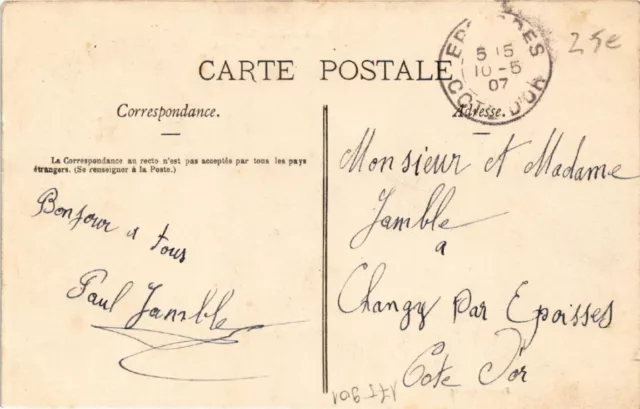 CARTE POSTALE
5 15
10-5
07
CÔTE D'OR
25e
Correspondance.
Adresse.
La Correspondance au recto n'est pas acceptée par tous les pays
étrangers. (Se renseigner à la Poste.)
Bonjour a tous
Paul Jamble
Monsieur et Madame
Jamble
a
Changy par Epoisses
Cote d'or